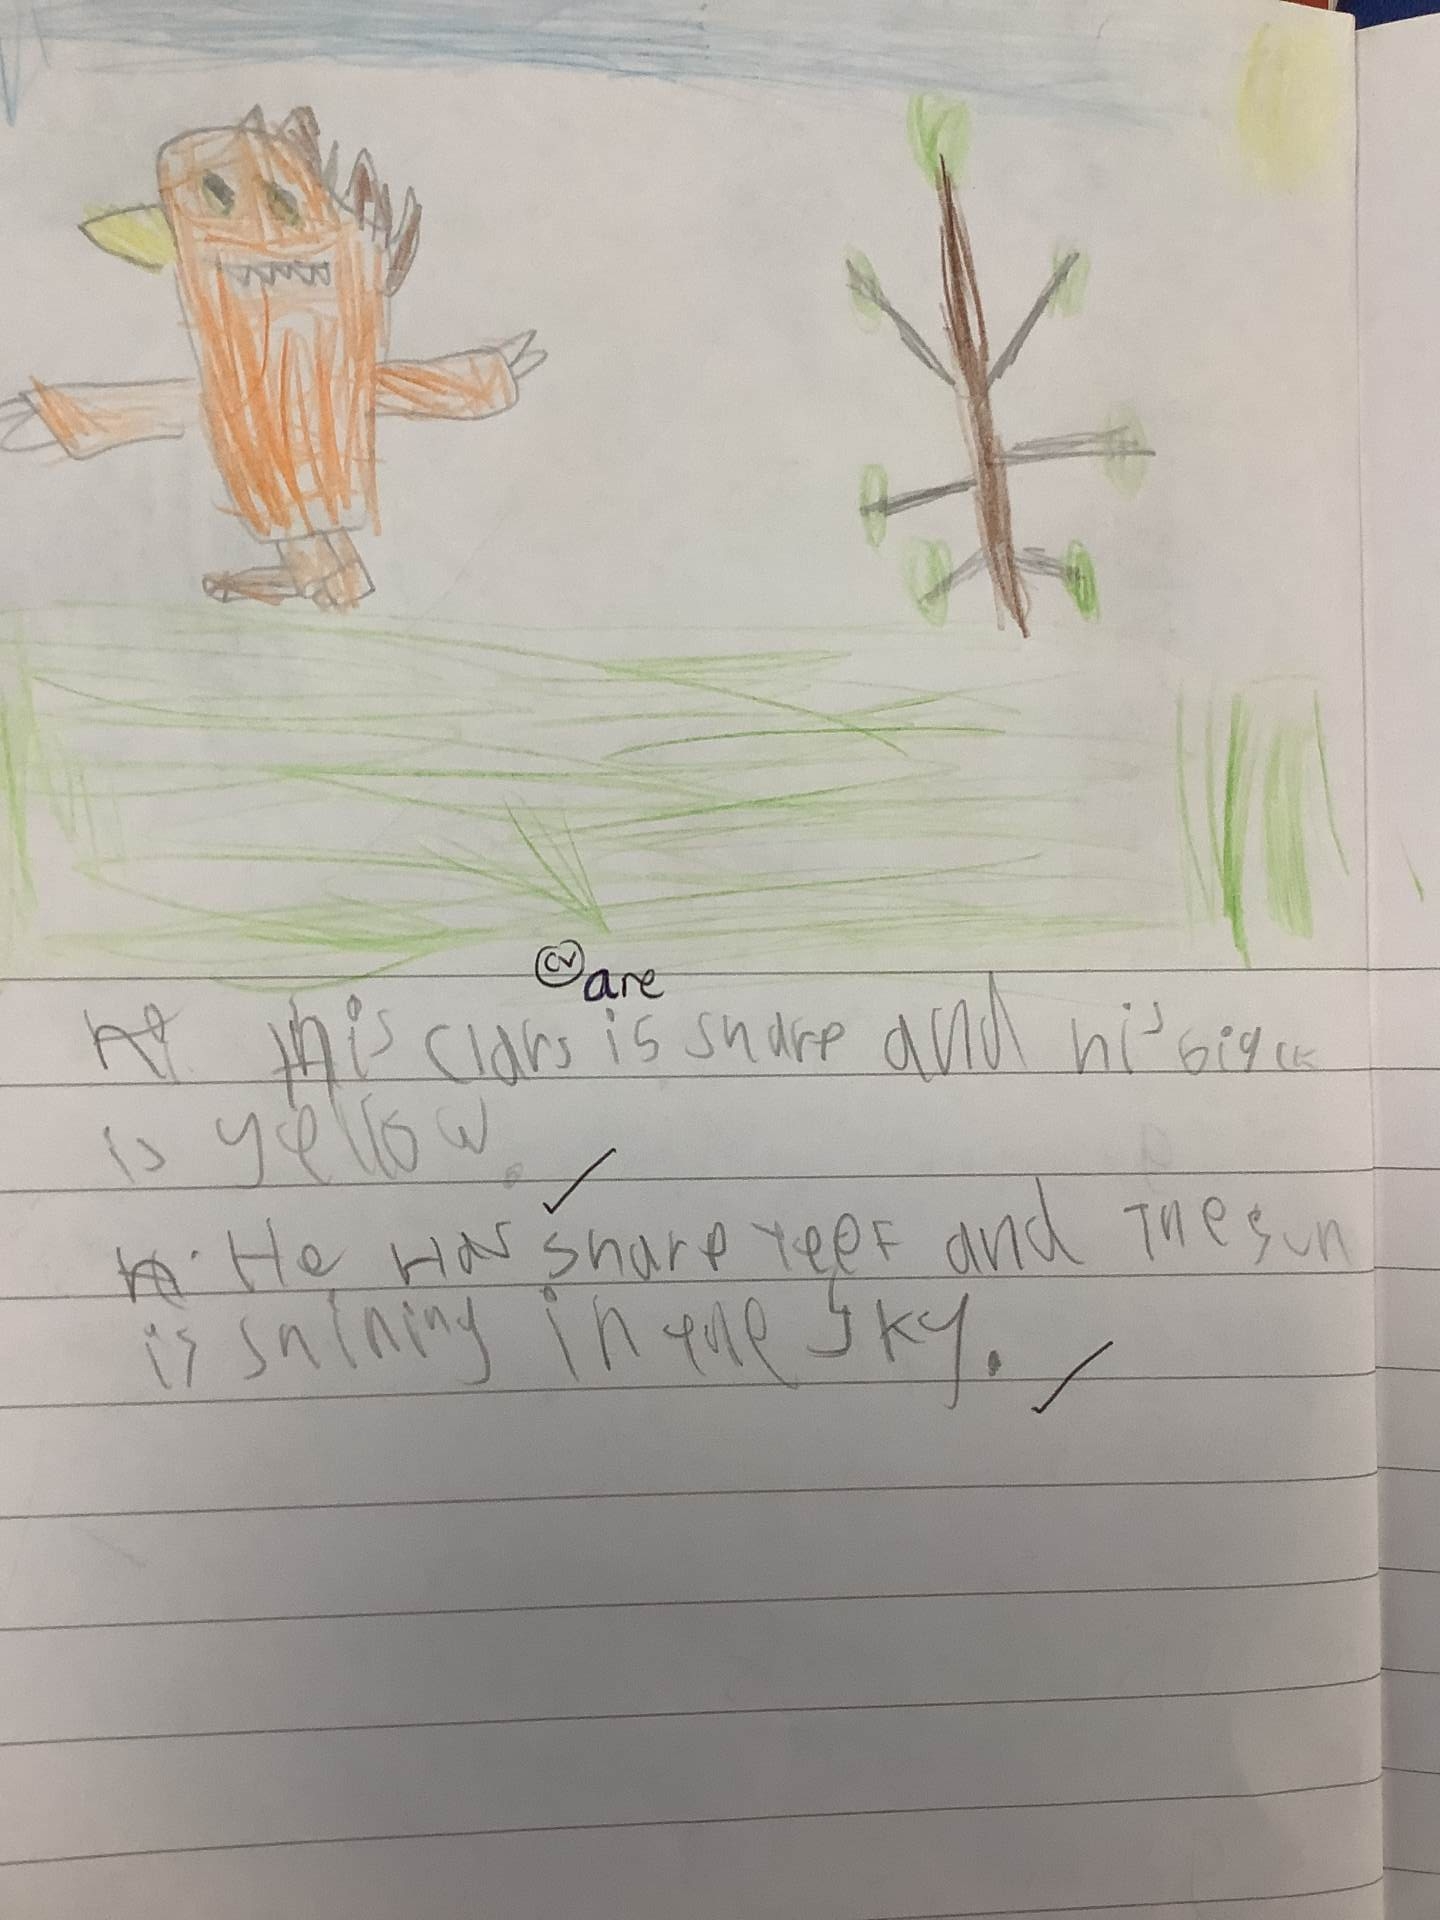 CV are
his clars is sharp and his bigck
is yellow.
He Has sharp teef and The sun
is shining in the sky.